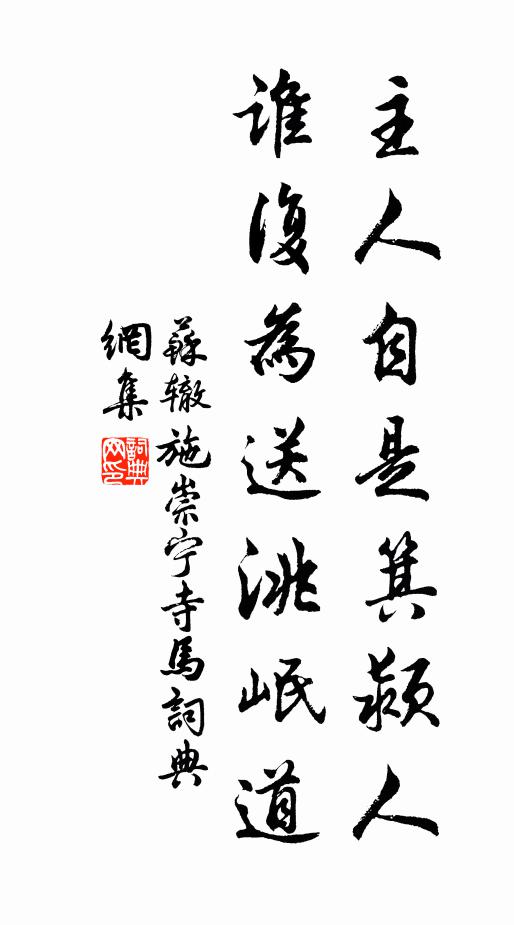 主人自是箕潁人
誰復為送洮岷道
蘇辙施崇宁寺馬詞典
網集
詞典
网印